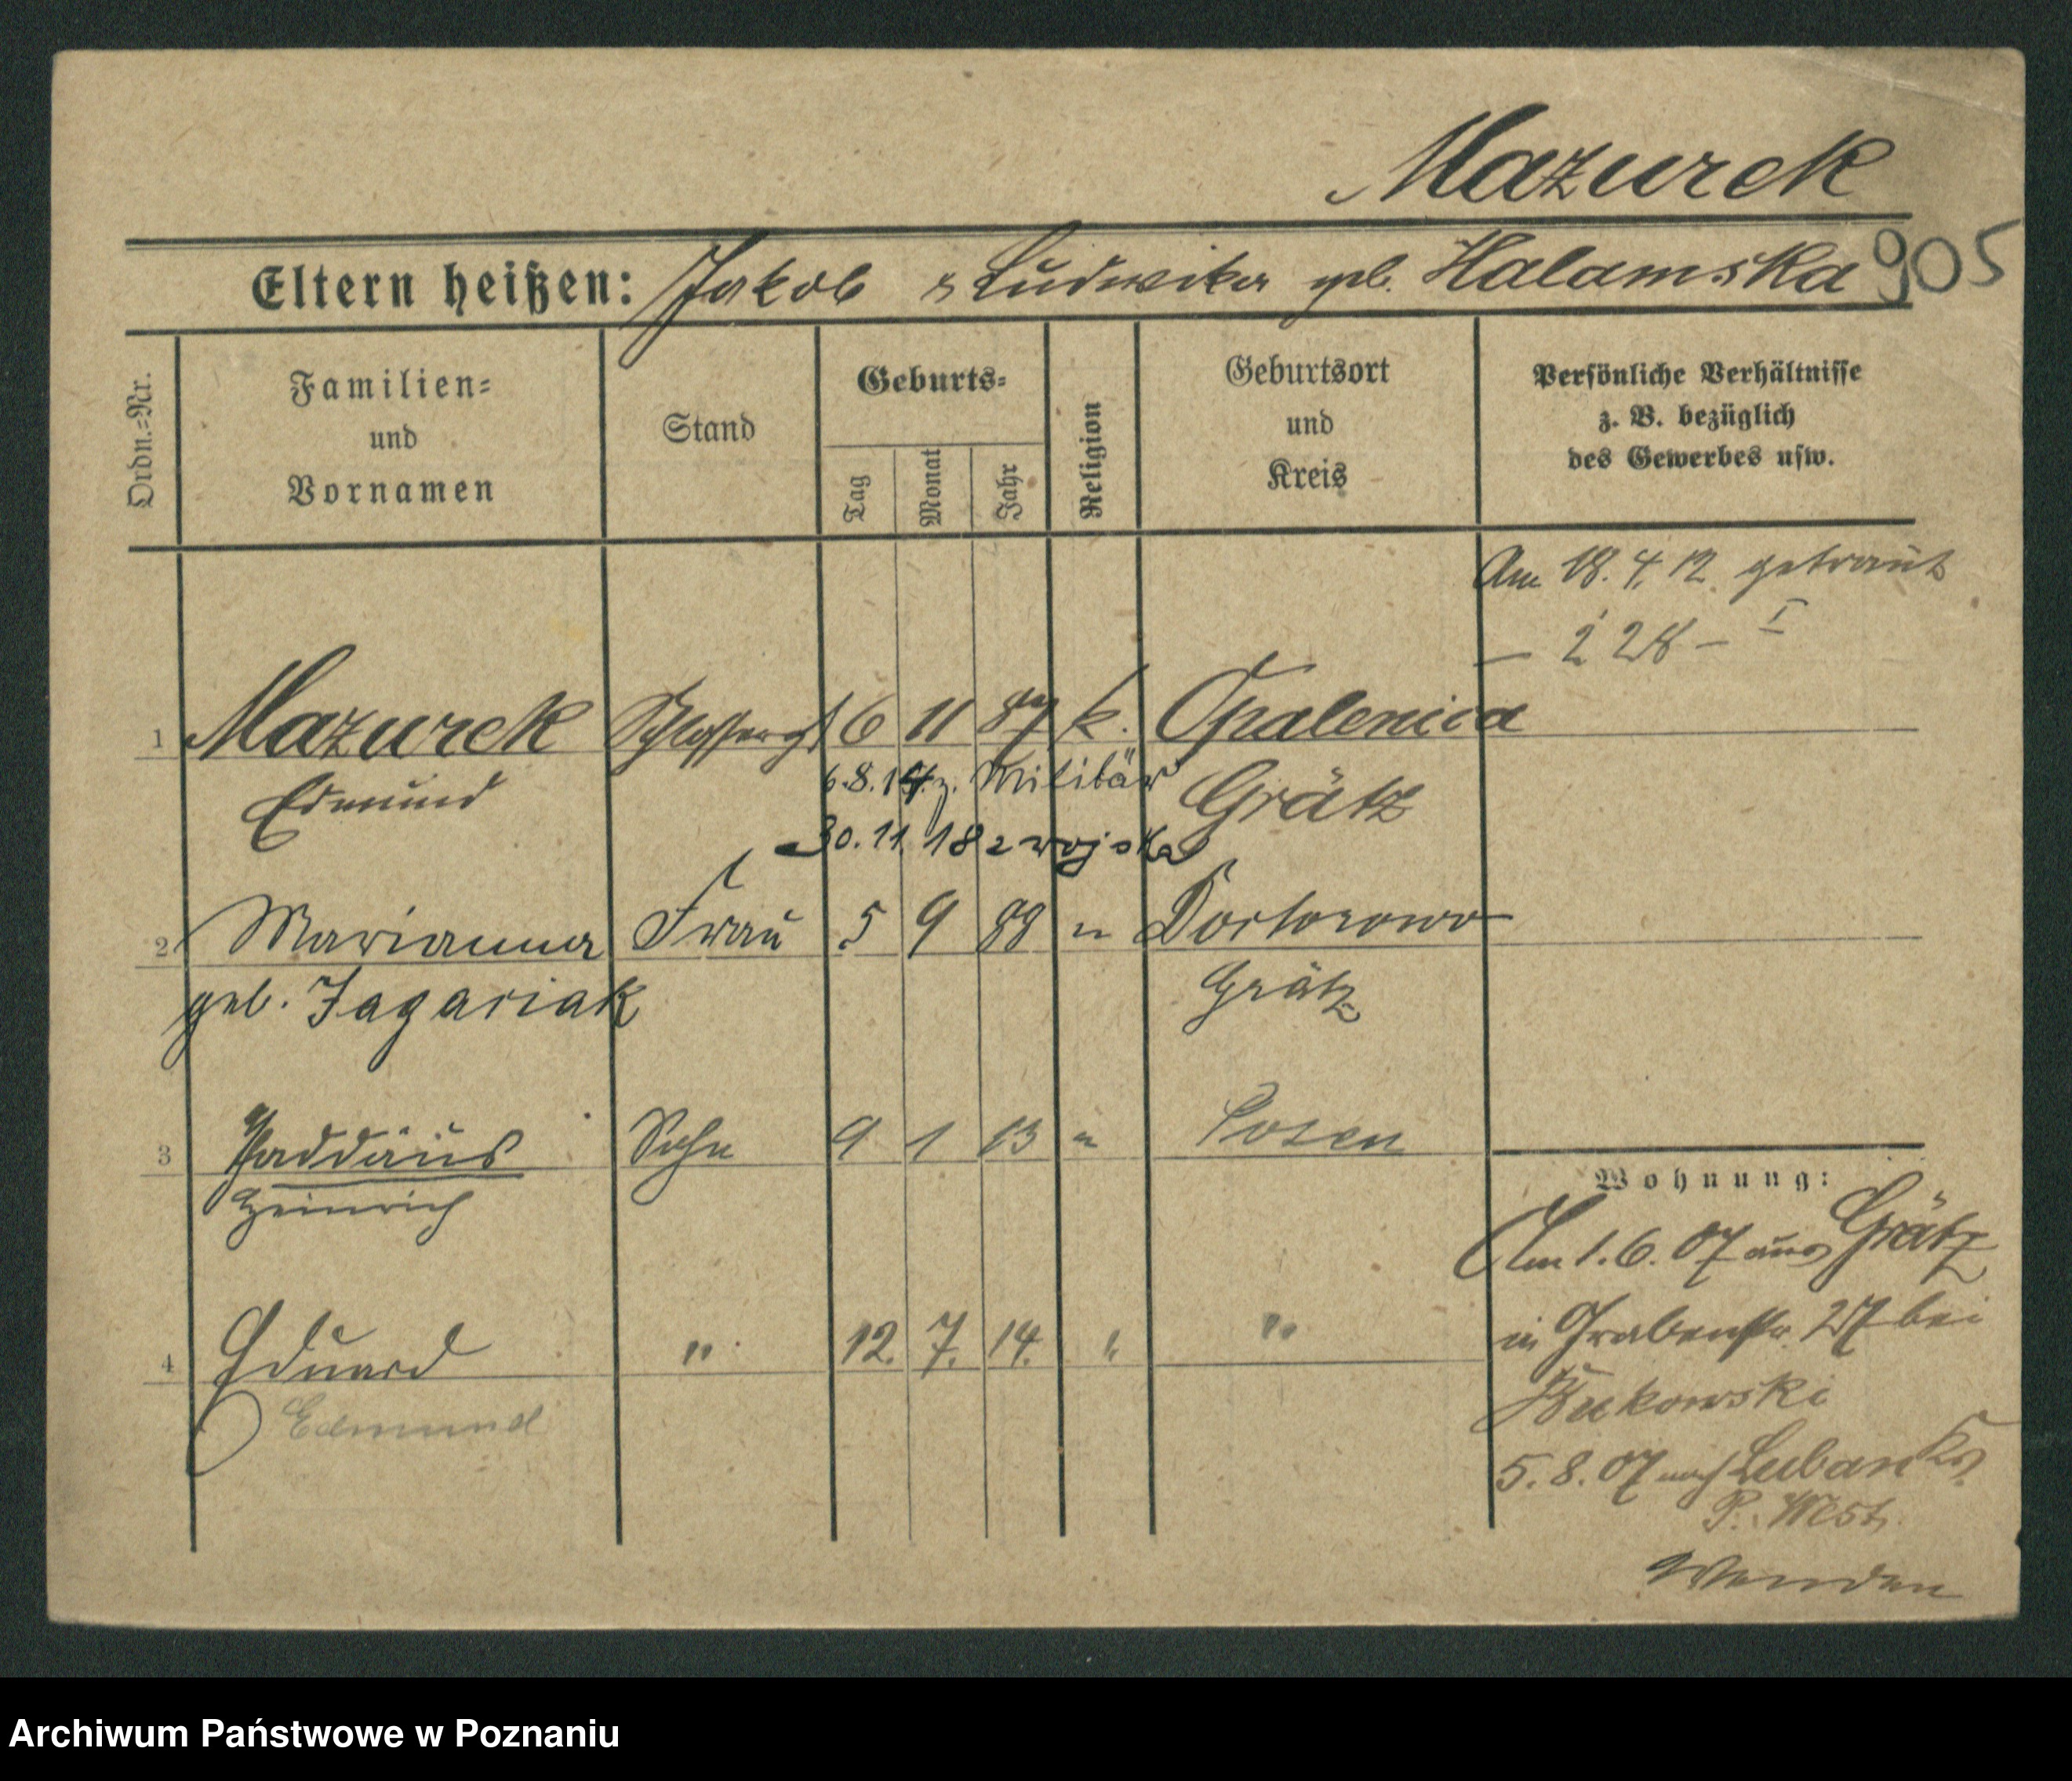 Mazurek
Eltern heißen: Jakob u Ludwika geb. Halamska 905
Ordn.-Nr.
Familien-
und
Vornamen
Stand
Geburts-
Tag
Monat
Jahr
Religion
Geburtsort
und
Kreis
Persönliche Verhältnisse
z. B. bezüglich
des Gewerbes usw.
Am 18. 4. 12. getraut
1 Mazurek Schlosserg. 6 11 87 k. Opalenica
Edmund Grätz
6.8.14 z. Militär
30.11.18 z wojska
2 Marianna Frau 5 9 88 "
geb. Jagasiak Grätz
3 Thaddäus Sohn 9 1 13 " Posen
Heinrich
4 Eduard " 12. 7. 14. " "
Edmund
Wohnung:
Am 1. 6. 07 aus Grätz
in Grabenstr. 27 bei
Bukowski
5. 8. 07 nach Luban Ks.
P. West.
Wenden
Archiwum Państwowe w Poznaniu